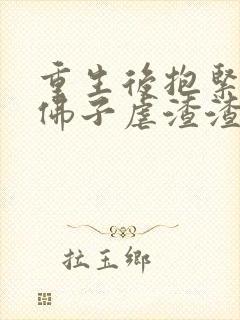 重生後抱緊
佛子虐渣渣
拉玉鄉